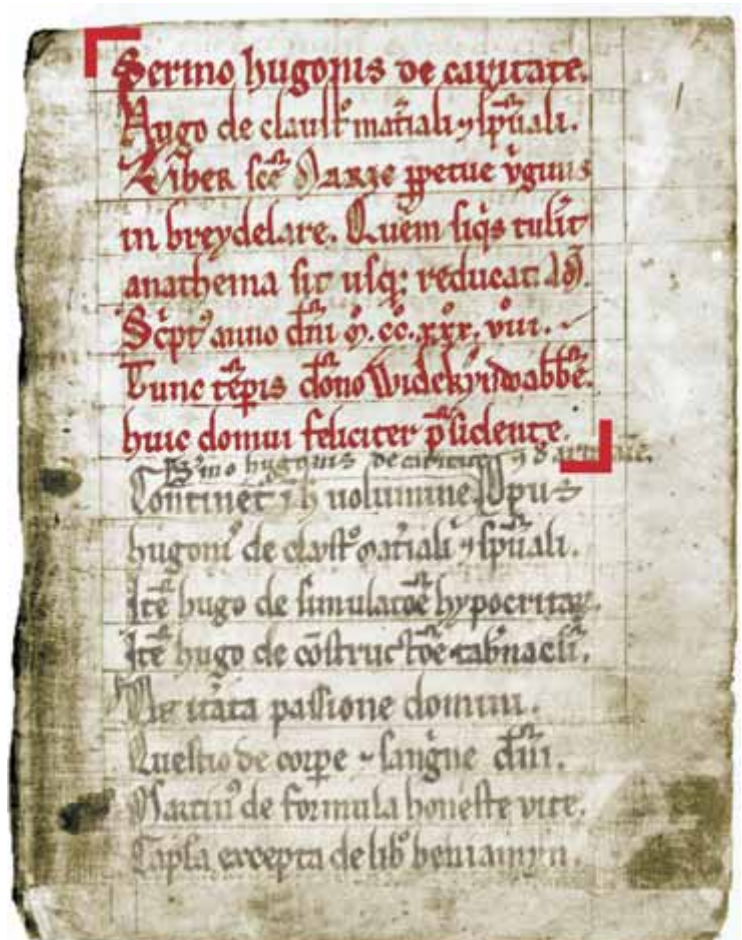 Sermo hugonis de caritate.
hugo de claustᵒ mat̄iali ⁊ sp̄uali.
Liber sc̄e Marie ꝑpetue v̄ginis
in breydelare. Quem siqͥs tulit
anathema sit usqꝫ reducat.
Sc̄ptꝰ anno dn̄i mͦ.ccͦ.xxxͦ.viiiͦ.
Tunc tēꝑis dōno Widekindo abbē.
huic domui feliciter p̄sidente.
Sermo hugonis de caritate
Continet᷑ ī h̄ uolumine Opus
hugonis de claustᵒ mat̄iali ⁊ sp̄uali.
Itē hugo de simulatōe hypocritaꝝ.
Itē hugo de cōstructōe tab̄nacli.
passione domini.
Questio de corꝑe ⁊ sanguīe dn̄i.
Martinꝰ de formula honeste vite.
Cap̄la excepta de libᵒ beniamyn.